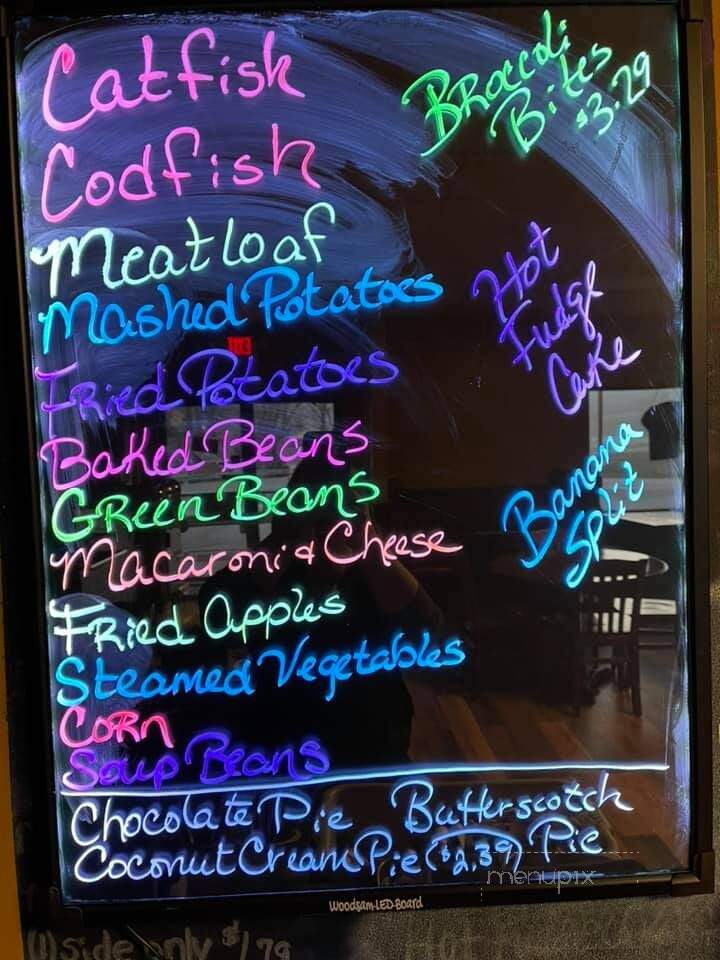 Catfish
Codfish
Meatloaf
Mashed Potatoes
Fried Potatoes
Baked Beans
Green Beans
Macaroni & Cheese
Fried Apples
Steamed Vegetables
Corn
Soup Beans
Broccoli
Bites
$3.29
Hot
Fudge
Cake
Banana
Split
Chocolate Pie Butterscotch
Coconut Cream Pie ($2.39) Pie
menupix
Woodsam-LED-Board
(1) side only $1.79